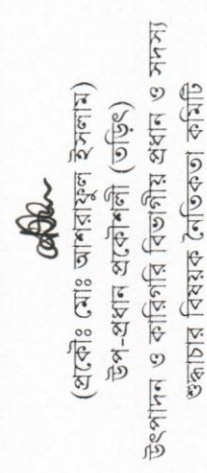 (প্রকৌঃ মোঃ আশরাফুল ইসলাম)
উপ-প্রধান প্রকৌশলী (তড়িৎ)
উৎপাদন ও কারিগরি বিভাগীয় প্রধান ও সদস্য
শুদ্ধাচার বিষয়ক নৈতিকতা কমিটি